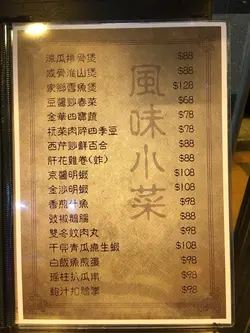 涼瓜排骨煲 $88
咸骨淮山煲 $88
家鄉雪魚煲 $128
豆醬炒春菜 $68
金華四寶蔬 $78
欖菜肉碎四季豆 $78
西芹炒鮮百合 $88
肝花雞卷(炸) $88
京醬明蝦 $108
金沙明蝦 $108
香煎 魚 $98
豉椒鵝腸 $88
雙冬炆肉丸 $98
干煎青瓜 生蝦 $108
白飯魚煎蛋 $98
瑤柱扒瓜 $98
鮑汁扣 $98
風味小菜